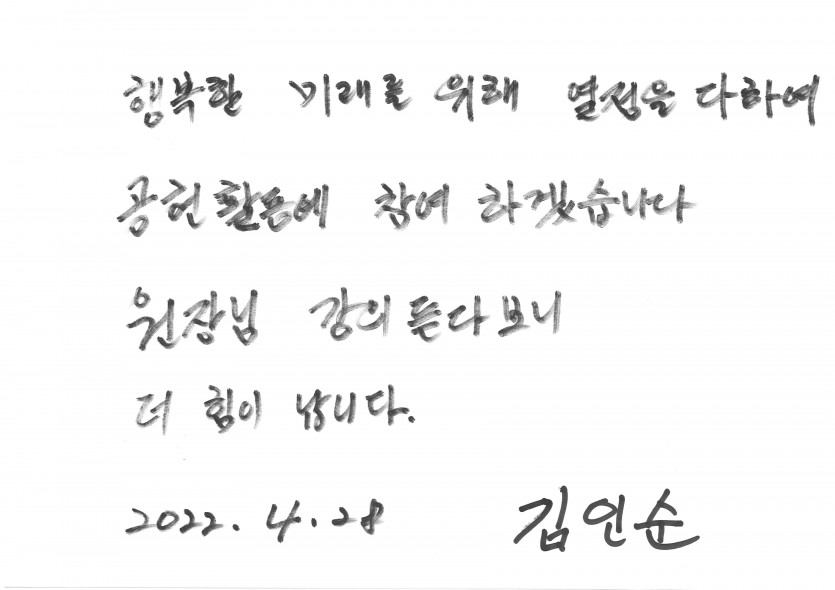 행복한 미래를 위해 열정을 다하여
공헌활동에 참여 하겠습니다
원장님 강의 듣다보니
더 힘이 납니다.
2022. 4. 28 김인순